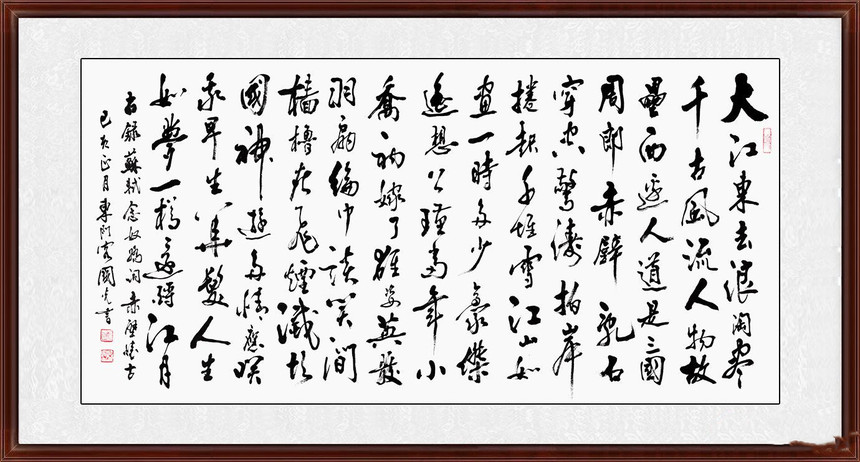 大江東去浪淘盡
千古風流人物故
壘西邊人道是三國
周郎赤壁亂石
穿空驚濤拍岸
捲起千堆雪江山如
畫一時多少豪傑
遙想公瑾當年小
喬初嫁了雄姿英發
羽扇綸巾談笑間
檣櫓灰飛煙滅故
國神遊多情應咲
我早生華髮人生
如夢一樽還酹江月
右錄蘇軾念奴嬌詞赤壁懷古
己亥正月國書